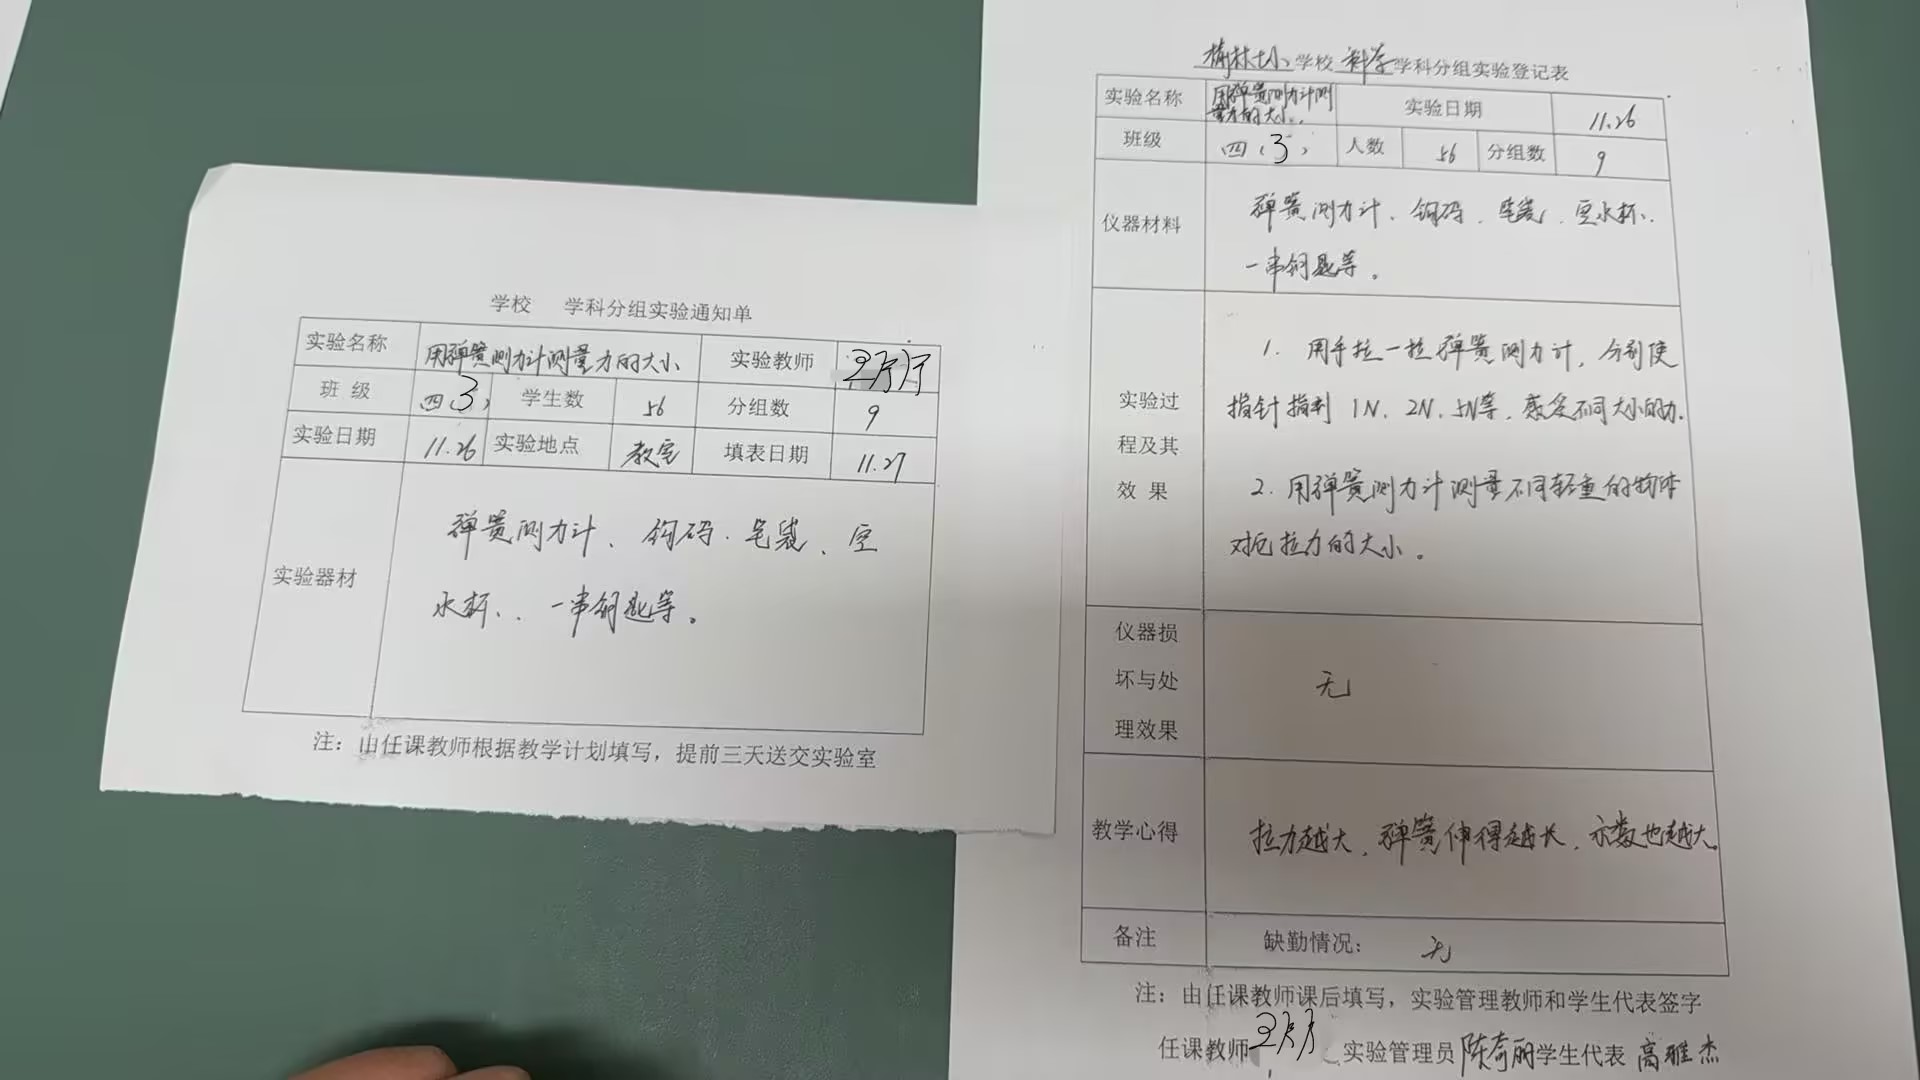 学校 学科分组实验通知单
实验名称 用弹簧测力计测量力的大小 实验教师
班级 四(3) 学生数 56 分组数 9
实验日期 11.26 实验地点 教室 填表日期 11.27
实验器材
弹簧测力计、钩码.笔袋、空
水杯、.一串钥匙等。
注：由任课教师根据教学计划填写，提前三天送交实验室
学校 科学学科分组实验登记表
实验名称 用弹簧测力计测
量力的大小. 实验日期 11.26
班级 四(3) 人数 56 分组数 9
仪器材料
弹簧测力计、钩码.笔袋.空水杯、.
一串钥匙等。
实验过
程及其
效果
1.用手拉一拉弹簧测力计，分别使
指针指到1N、2N、5N等，感受不同大小的力.
2.用弹簧测力计测量不同轻重的物体
对它拉力的大小。
仪器损
坏与处
理效果
无
教学心得
拉力越大，弹簧伸得越长，示数也越大。
备注 缺勤情况：无
注：由任课教师课后填写，实验管理教师和学生代表签字
任课教师 实验管理员 陈奇丽 学生代表 高雅杰